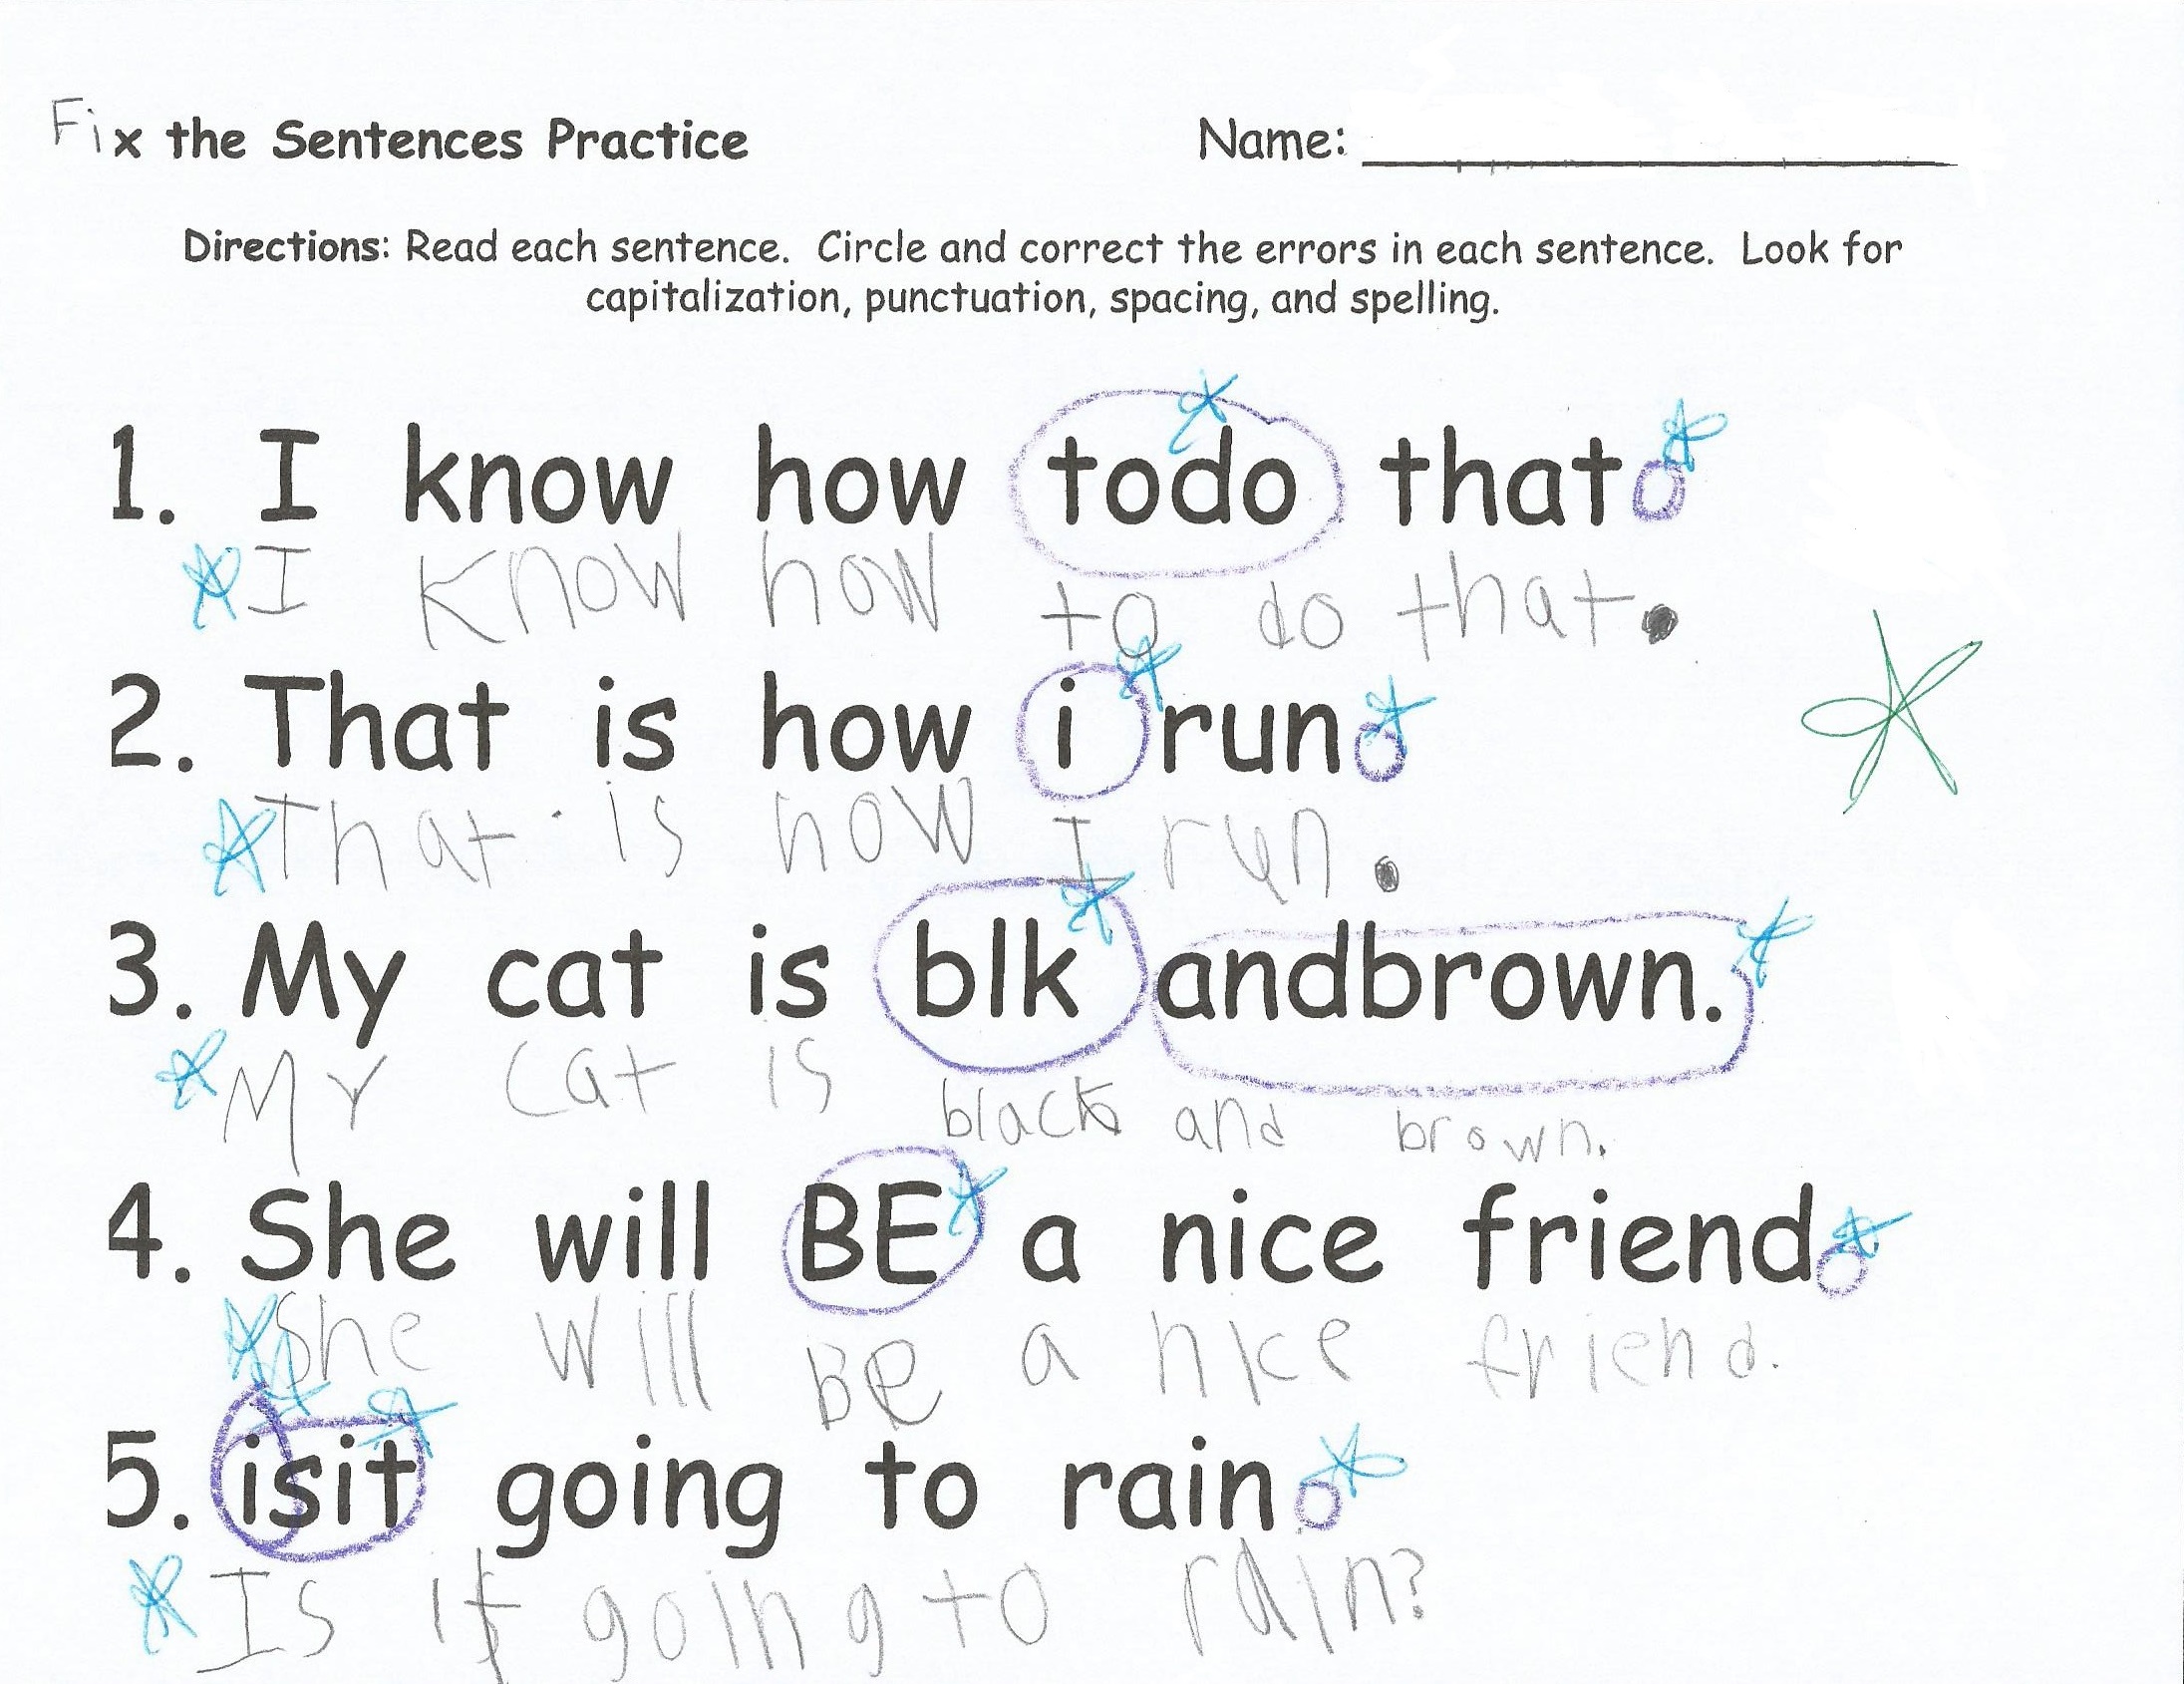 Fix the Sentences Practice Name:
Directions: Read each sentence. Circle and correct the errors in each sentence. Look for
capitalization, punctuation, spacing, and spelling.
1. I know how todo that
I know how to do that.
2. That is how i run
That is how I run.
3. My cat is blk andbrown.
My cat is black and brown.
4. She will BE a nice friend
She will Be a nice friend.
5. isit going to rain
Is it going to rain?